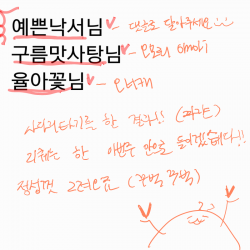 예쁜낙서님 - 댓글로 달아주세요
구름맛사탕님 - 오모리
율아꽃님 - 오너캐
사다리타기를 한 결과!! (과좌)
리퀘는 한 이번주 안으로 들리겠습니다!!
정성껏 그려오끔 (꾸벅 꾸벅)